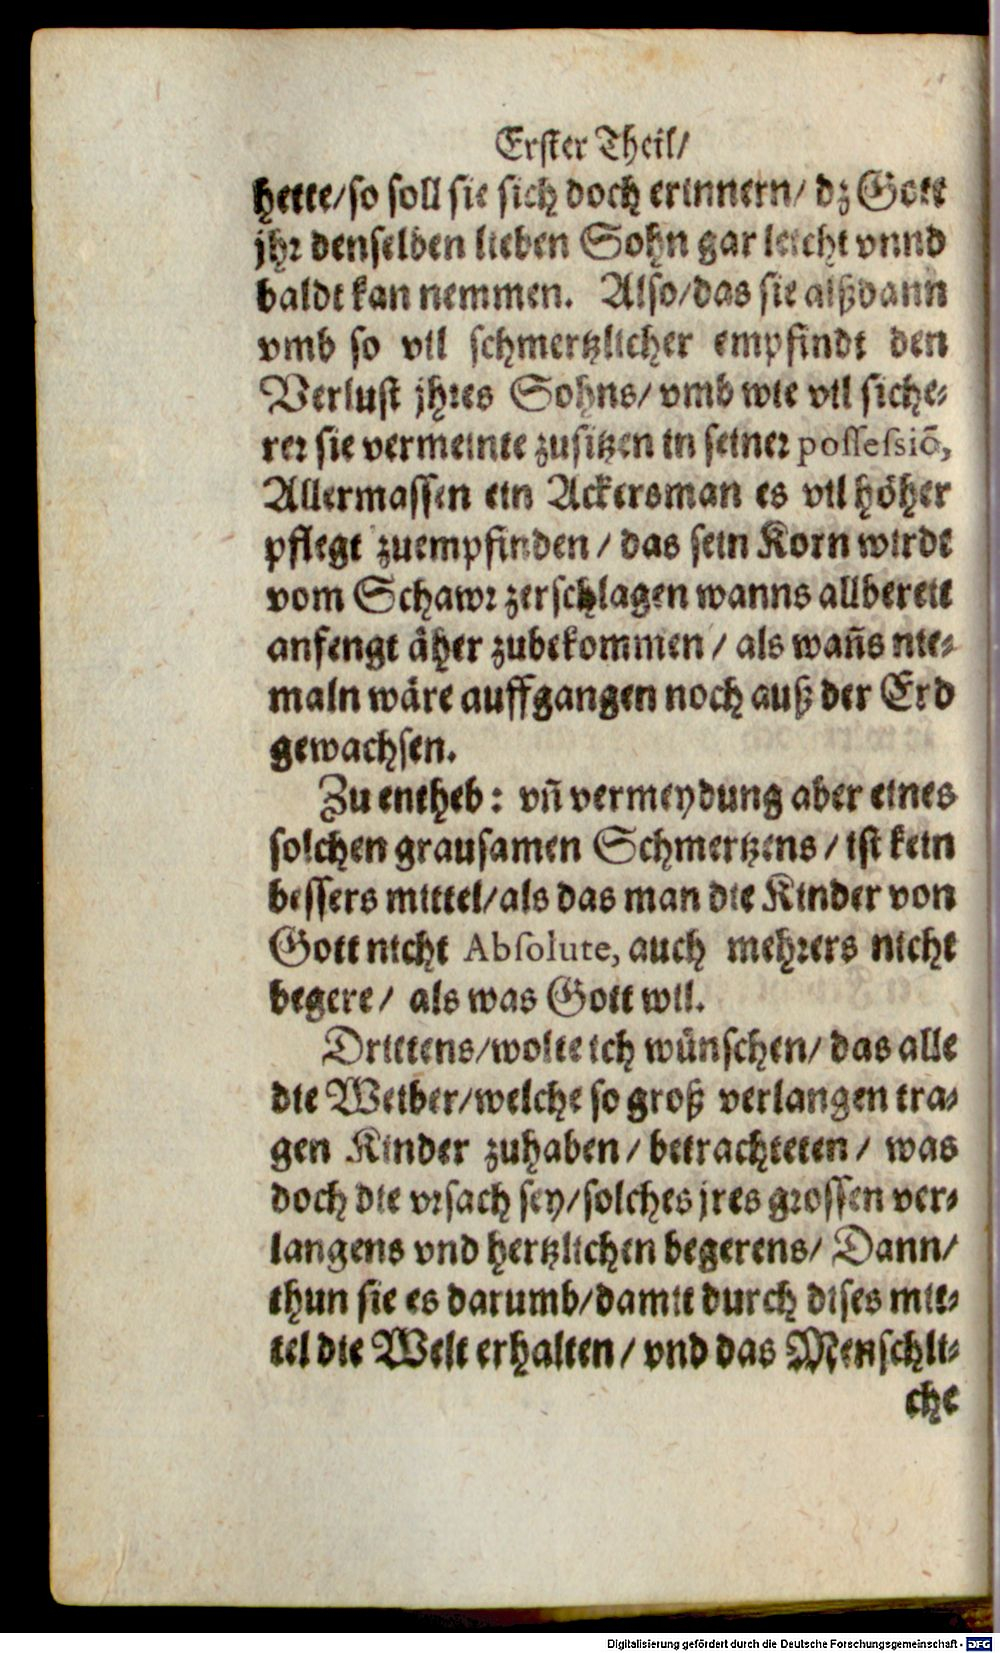 Erster Theil/
hette/so soll sie sich doch erinnern/ dz Gott
jhr denselben lieben Sohn gar leicht vnnd
baldt kan nemmen. Also/das sie alßdann
vmb so vil schmertzlicher empfindt den
Verlust jhres Sohns/ vmb wie vil siche-
rer sie vermeinte zusitzen in seiner possessiõ,
Allermassen ein Ackersman es vil höher
pflegt zuempfinden / das sein Korn wirdt
vom Schawr zerschlagen wanns allbereit
anfengt äher zubekommen / als wañs nie-
maln wäre auffgangen noch auß der Erd
gewachsen.
Zu entheb: vñ vermeydung aber eines
solchen grausamen Schmertzens / ist kein
bessers mittel/als das man die Kinder von
Gott nicht Absolute, auch mehrers nicht
begere / als was Gott wil.
Drittens/wolte ich wünschen/ das alle
die Weiber/welche so groß verlangen tra-
gen Kinder zuhaben / betrachteten / was
doch die vrsach sey/solches jres grossen ver-
langens vnd hertzlichen begerens/ Dann/
thun sie es darumb/damit durch dises mit-
tel die Welt erhalten / vnd das Menschli-
che
Digitalisierung gefördert durch die Deutsche Forschungsgemeinschaft - DFG